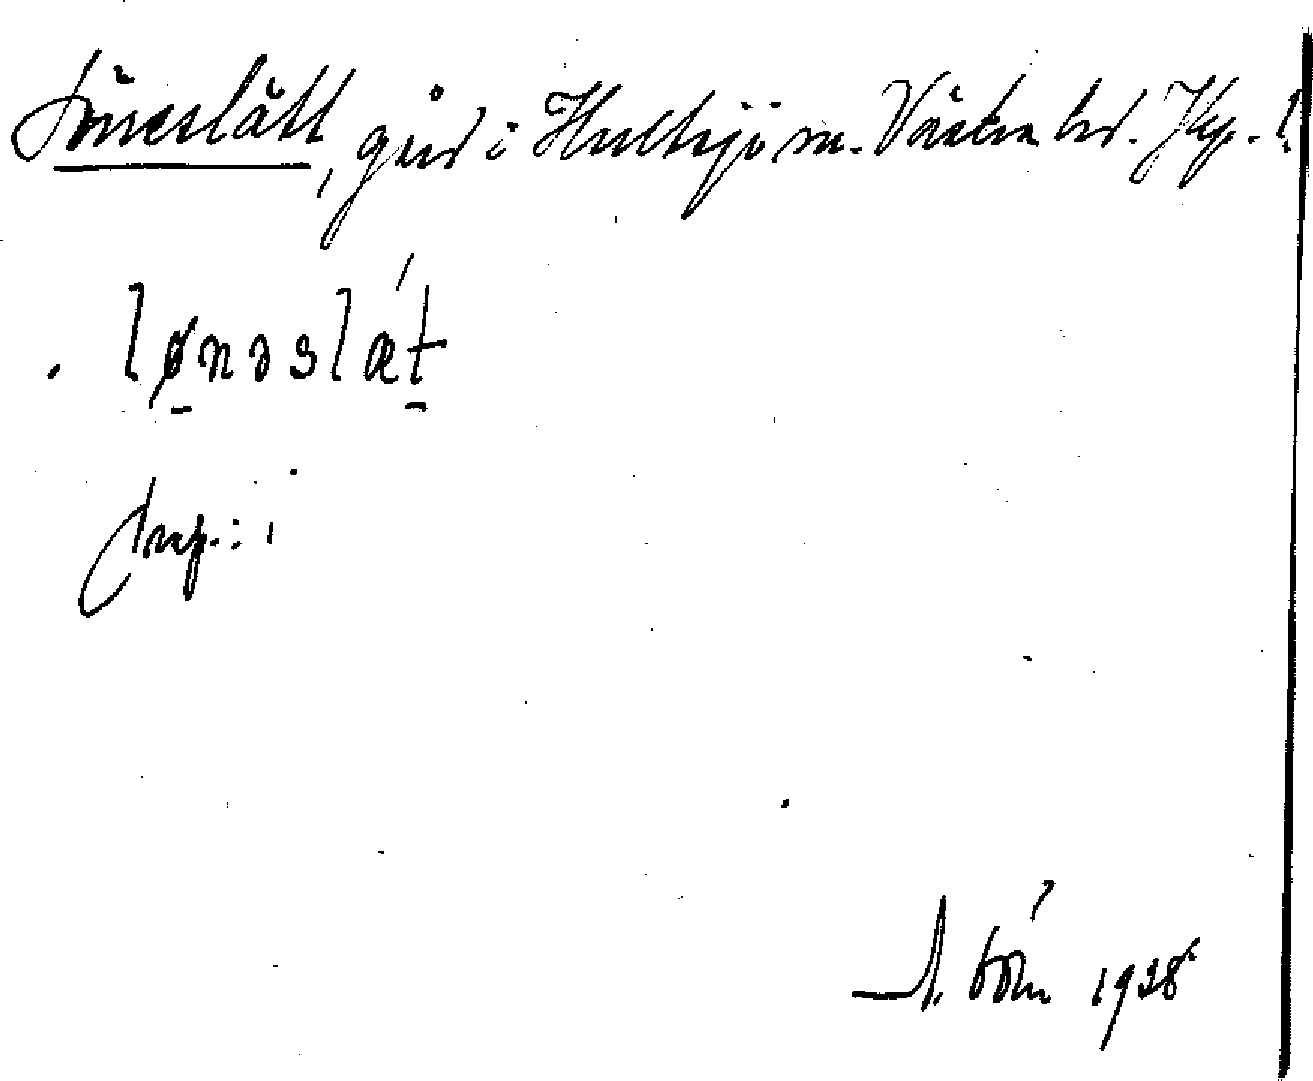 Löneslätt, gård i Hultsjö sn. Västra hd. Jkp. l.
lønəslæt
prep.: i
1938